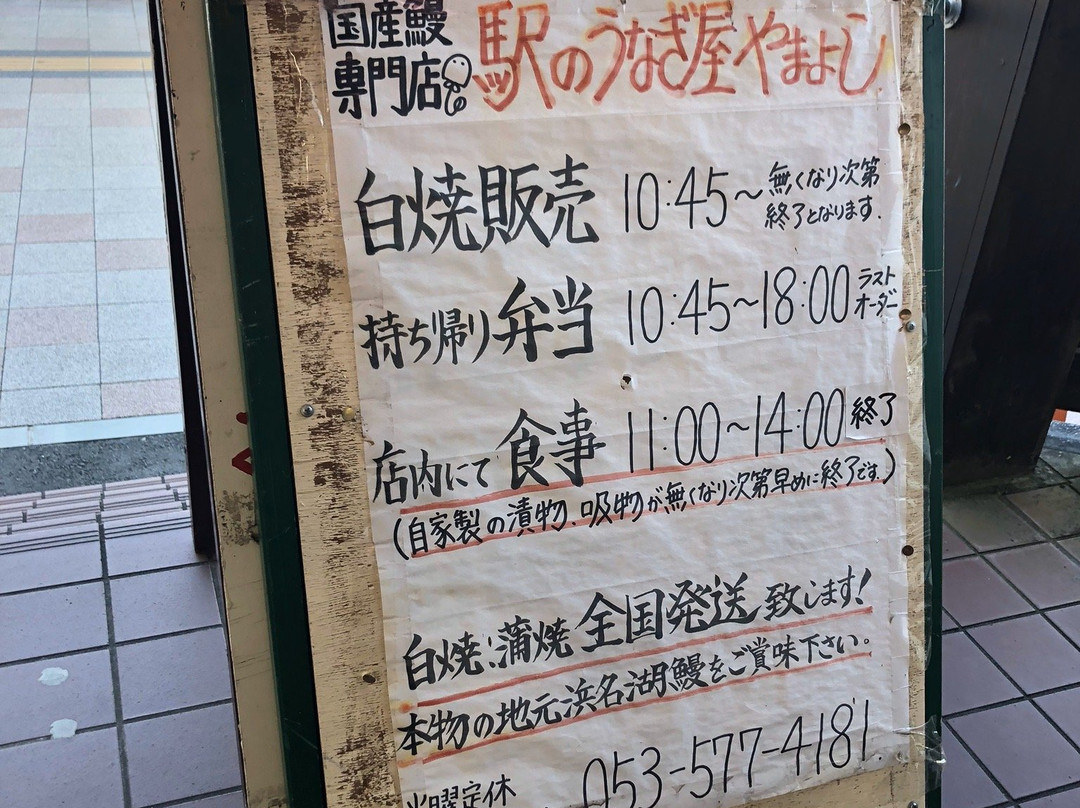 国産鰻
専門店
駅のうなぎ屋 やまよし
白焼販売 10:45～無くなり次第
終了となります.
持ち帰り弁当 10:45～18:00 ラスト
オーダー
店内にて食事 11:00～14:00 終了
(自家製の漬物、吸物が無くなり次第早めに終了です.)
白焼:蒲焼 全国発送 致します!
本物の地元浜名湖鰻をご賞味下さい。
053-577-4181
定休